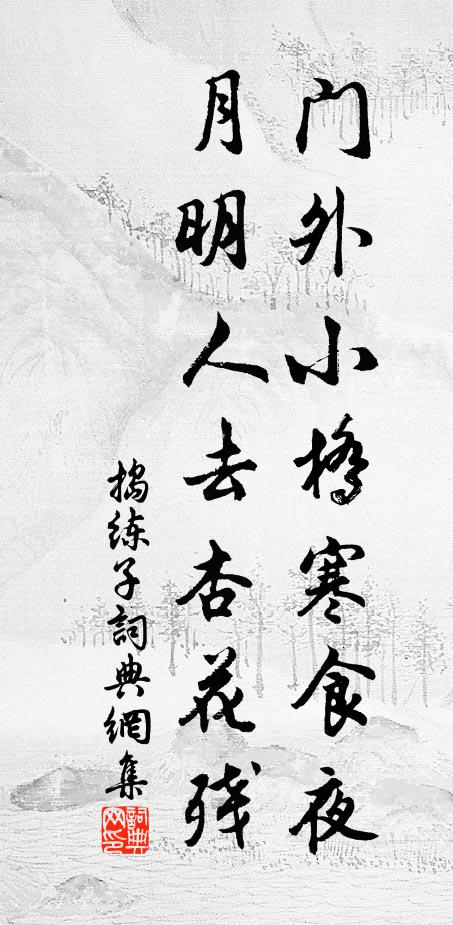 门外小橋寒食夜
月明人去杏花残
搗练子詞典網集
詞典網印